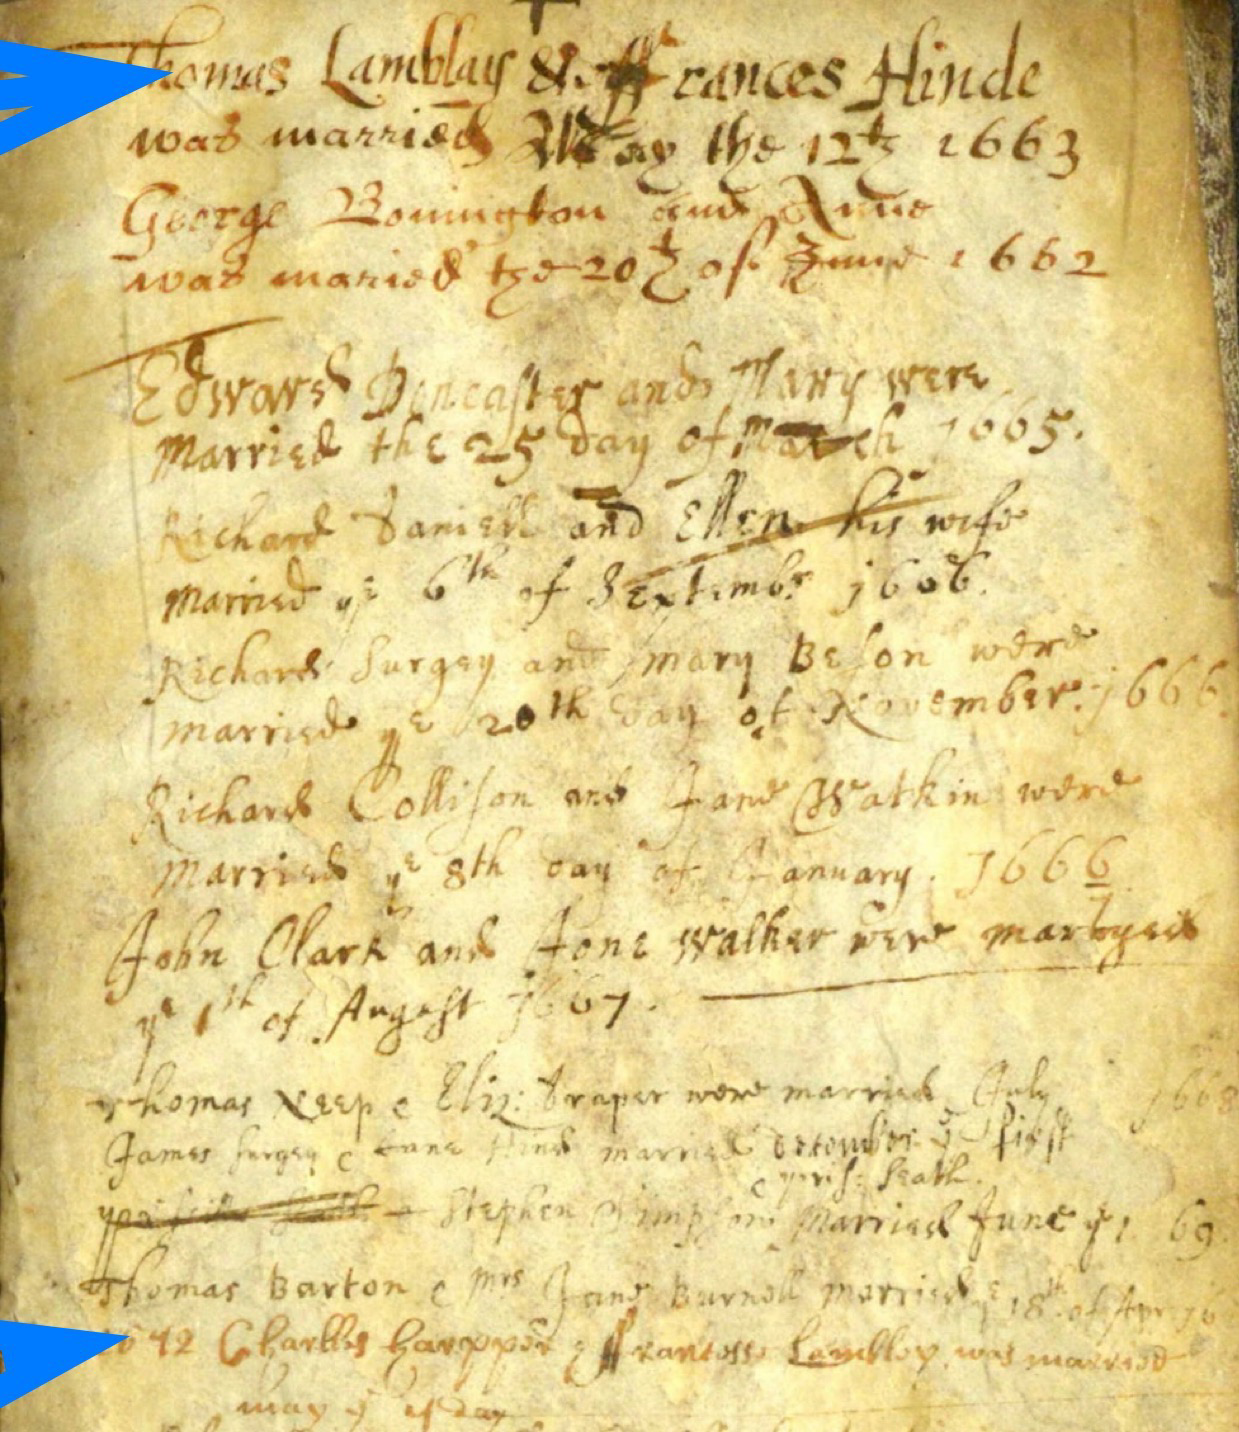 Thomas Lamblay & ffrances Hinde
was married May the 12th 1663
George Bonington and Anne
was maried the 20th of June 1662
Edward Doncaster and Mary were
Married the 25 day of March 1665.
Richard Daniell and Ellen his wife
Married ye 6th of Septembr 1666.
Richard Surgey and Mary Beson were
married ye 20th day of November. 1666.
Richard Collison and Jane Watkin were
Married ye 8th day of January. 1666/7
John Clark and Jone Walker were maryed
ye 1th of August 1667.
Thomas Neep & Eliz: Draper were married July 1668
James Surgey & Jane Hind married December ye first
& pris: Heath.
Stephen Simpson Married June ye 1. 69.
Thomas Barton & Mrs Jane Burnell married ye 18th of Apr 16
1672 Charlles harpper & ffrancess Lambley was married
may ye day